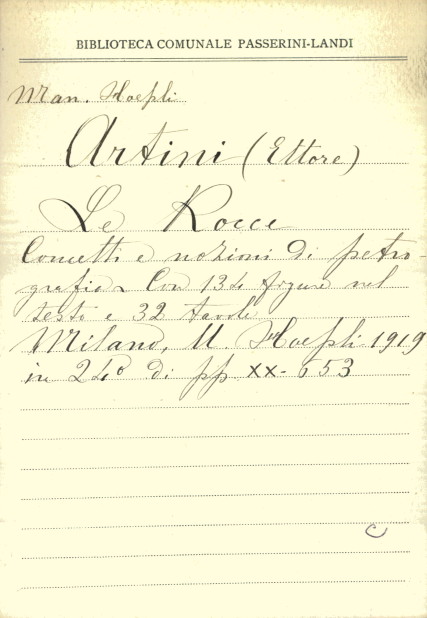 BIBLIOTECA COMUNALE PASSERINI-LANDI
Man. Hoepli
Artini (Ettore)
Le Rocce
Concetti e nozioni di petro-
grafia. Con 134 figure nel
testo e 32 tavole
Milano, U. Hoepli 1919
in 24° di pp. XX-653
C